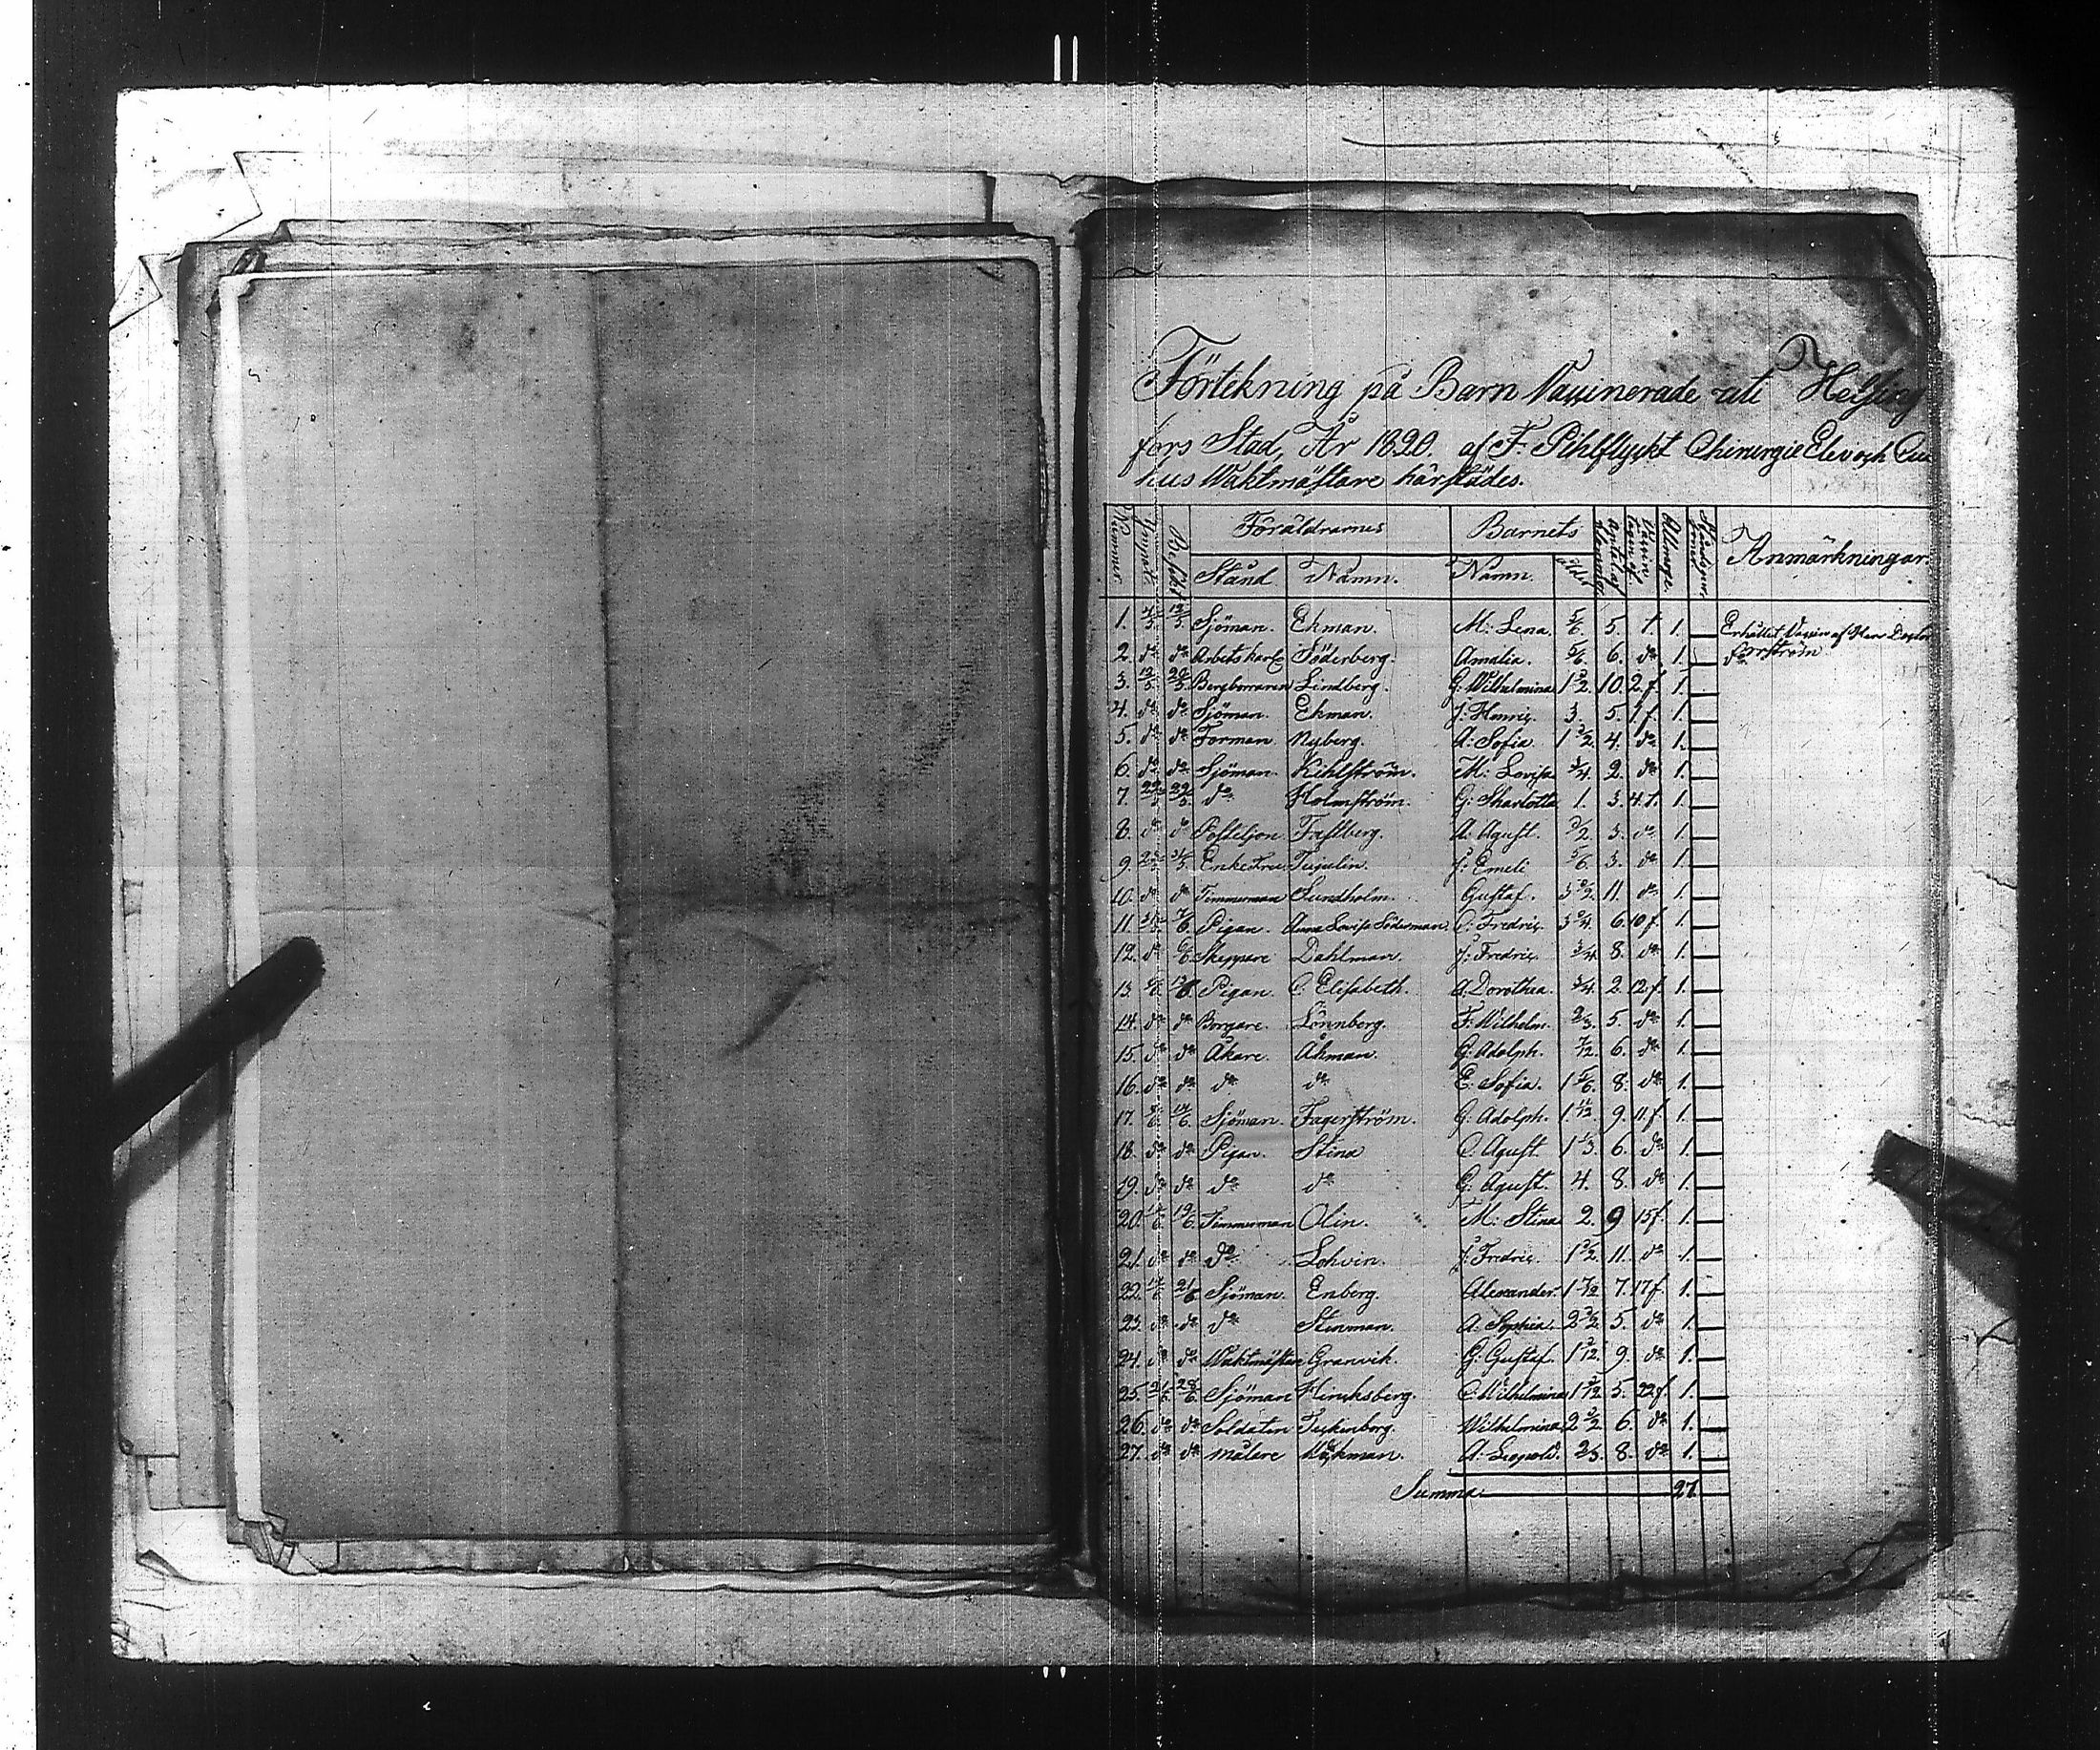 Förtekning på Barn Vaccinerade uti Helsing
fors Stad, År 1820. af F. Pihlflyckt Chirurgie Elev och
hus Waktmästare härstädes.
Nummer Ympade Besedt Föräldrarnes Barnets Anmärkningar.
Stånd Namn. Namn. ålder
1. Sjöman. Ekman. M: Lena. 5/6. 5. 1. 1. Erhållit Vaccin af Herr Doctor
2. do do Arbetskarl Söderberg. Amalia. 5/6. 6. do 1. do
3. Bergborraren Lindberg. G: Wilhelmina 1 1/2. 10. 2.f. 1.
4. do do Sjöman. Ekman. J: Henric. 3. 5. 1.f. 1.
5. do do Forman Nyberg. A: Sofia 1 1/2. 4. do 1.
6. do do Sjöman. Kihlström. M: Lovisa 3/4. 2. do 1.
7. do Holmström. G: Sharlotta 1. 3. 4.f. 1.
8. do do Postiljon A. Agust. 1/2. 3. do 1.
9. Enkefru J: Emeli 5/6. 3. do 1.
10. do do Timmerman Sundholm. Gustaf. 3 1/2. 11. do 1.
11. Pigan. Anna Lovisa Söderman C: Fredric 3 3/4. 6. 10f. 1.
12. do Skeppare Dahlman. J: Fredric 3/4. 8. do 1.
13. Pigan. C. Elisabeth. A: Dorothea. 3/4. 2. 12f. 1.
14. do do Borgare. Lönnberg. F: Wilhelm. 2/3. 5. do 1.
15. do do Åkare. Åkman. G: Adolph. 7/12. 6. do 1.
16. do do do do E: Sofia. 1 5/6. 8. do 1.
17. Sjöman. Fagerström. G: Adolph. 1 11/12. 9. 11.f. 1.
18. do do Pigan. Stina C. Agust. 1 1/3. 6. do 1.
19. do do do do G. Agust. 4. 8. do 1.
20. Timmerman Olin. M: Stina 2. 9 15f. 1.
21. do do do Lohvin. J: Fredric 1 1/2. 11. do 1.
22. Sjöman. Enberg. Alexander. 1 7/12 7. 17f. 1.
23. do do do Stenman. A: Sophia. 2 1/2. 5. do 1.
24. do do Waktmästare Granvik. G: Gustaf. 9. do 1.
25. Sjöman Hinriksberg. C. Wilhelmina 5. 22f. 1.
26. do do Soldaten Wilhelmina 2 1/2. 6. do 1.
27. do do Målare A: Leopold. 2/3. 8. do 1.
Summa 27.